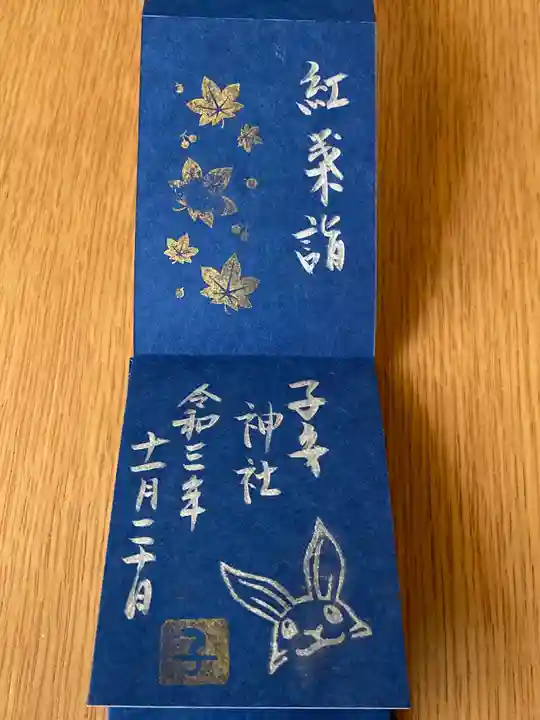 紅葉詣
子安
神社
令和三年
十一月二十日
子